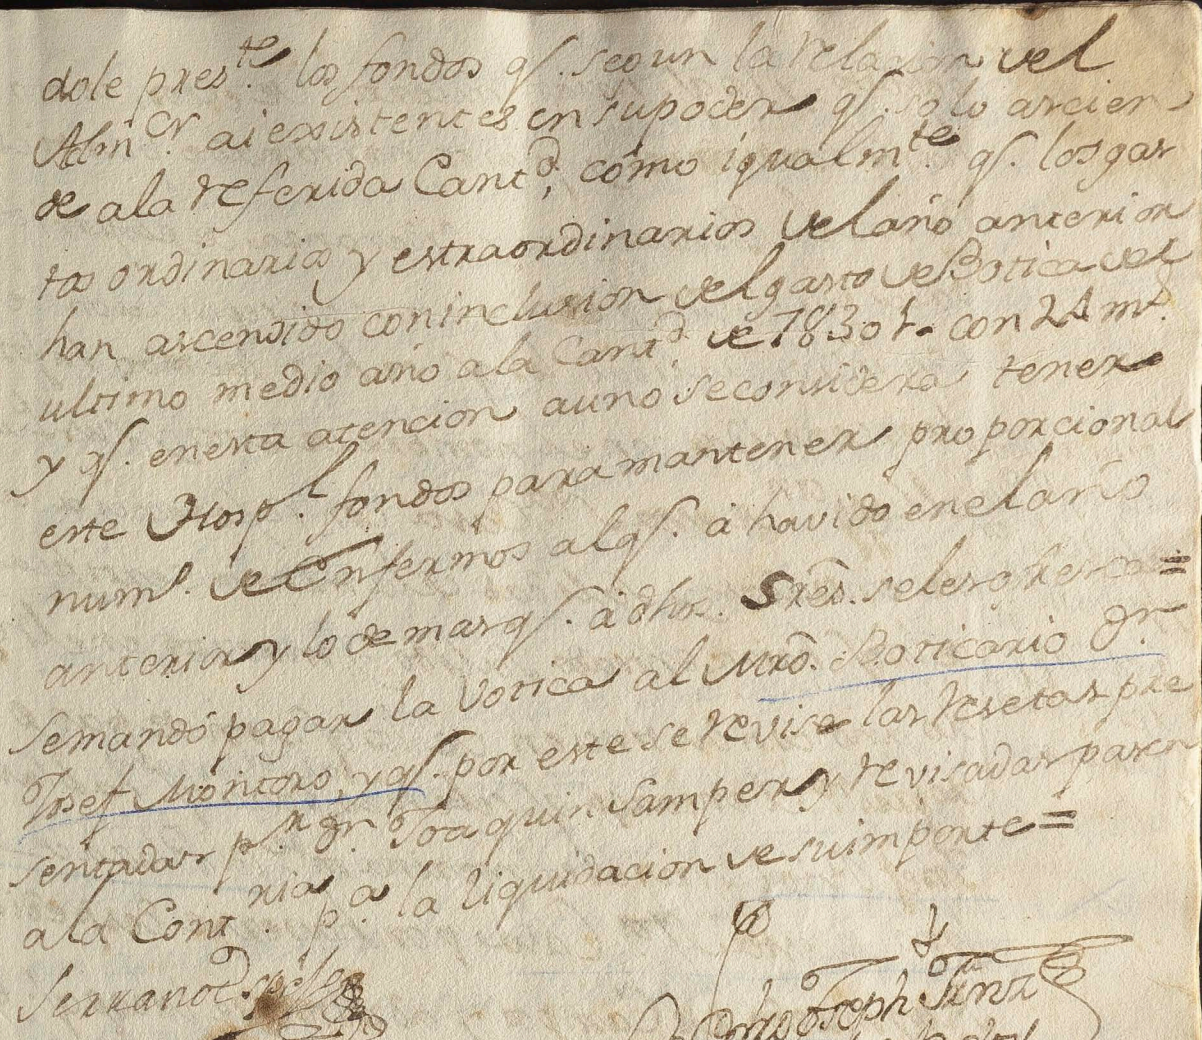 dole pres.te los fondos q.e segun la relazion del
Adm.or ai existentes en su poder q.e solo ascien
de a la referida Cant.d, como igualm.te q.e los gas
tos ordinarios y estraordinarios del año anterior
han ascendido con inclusion del gasto de Botica del
ultimo medio año a la Cant.d de 7830 r.s con 24 m.s
y q.e en esta atencion aun no se considera tener
este Hosp.l fondos para mantener proporcional
num.o de Enfermos al q.e á havido en el año
anterior y lo demas q.e á dhos. Sres. se les ofrezca =
Se mandó pagar la Votica al Mro. Boticario Dn.
Josef Montoro, y q.e por este se revise las resetas pre
sentadas p.r Dn. Joaquin Samper y revisadas pasen
a la Cont.ria p.a la liquidacion de su importe =
Serrano
Joseph